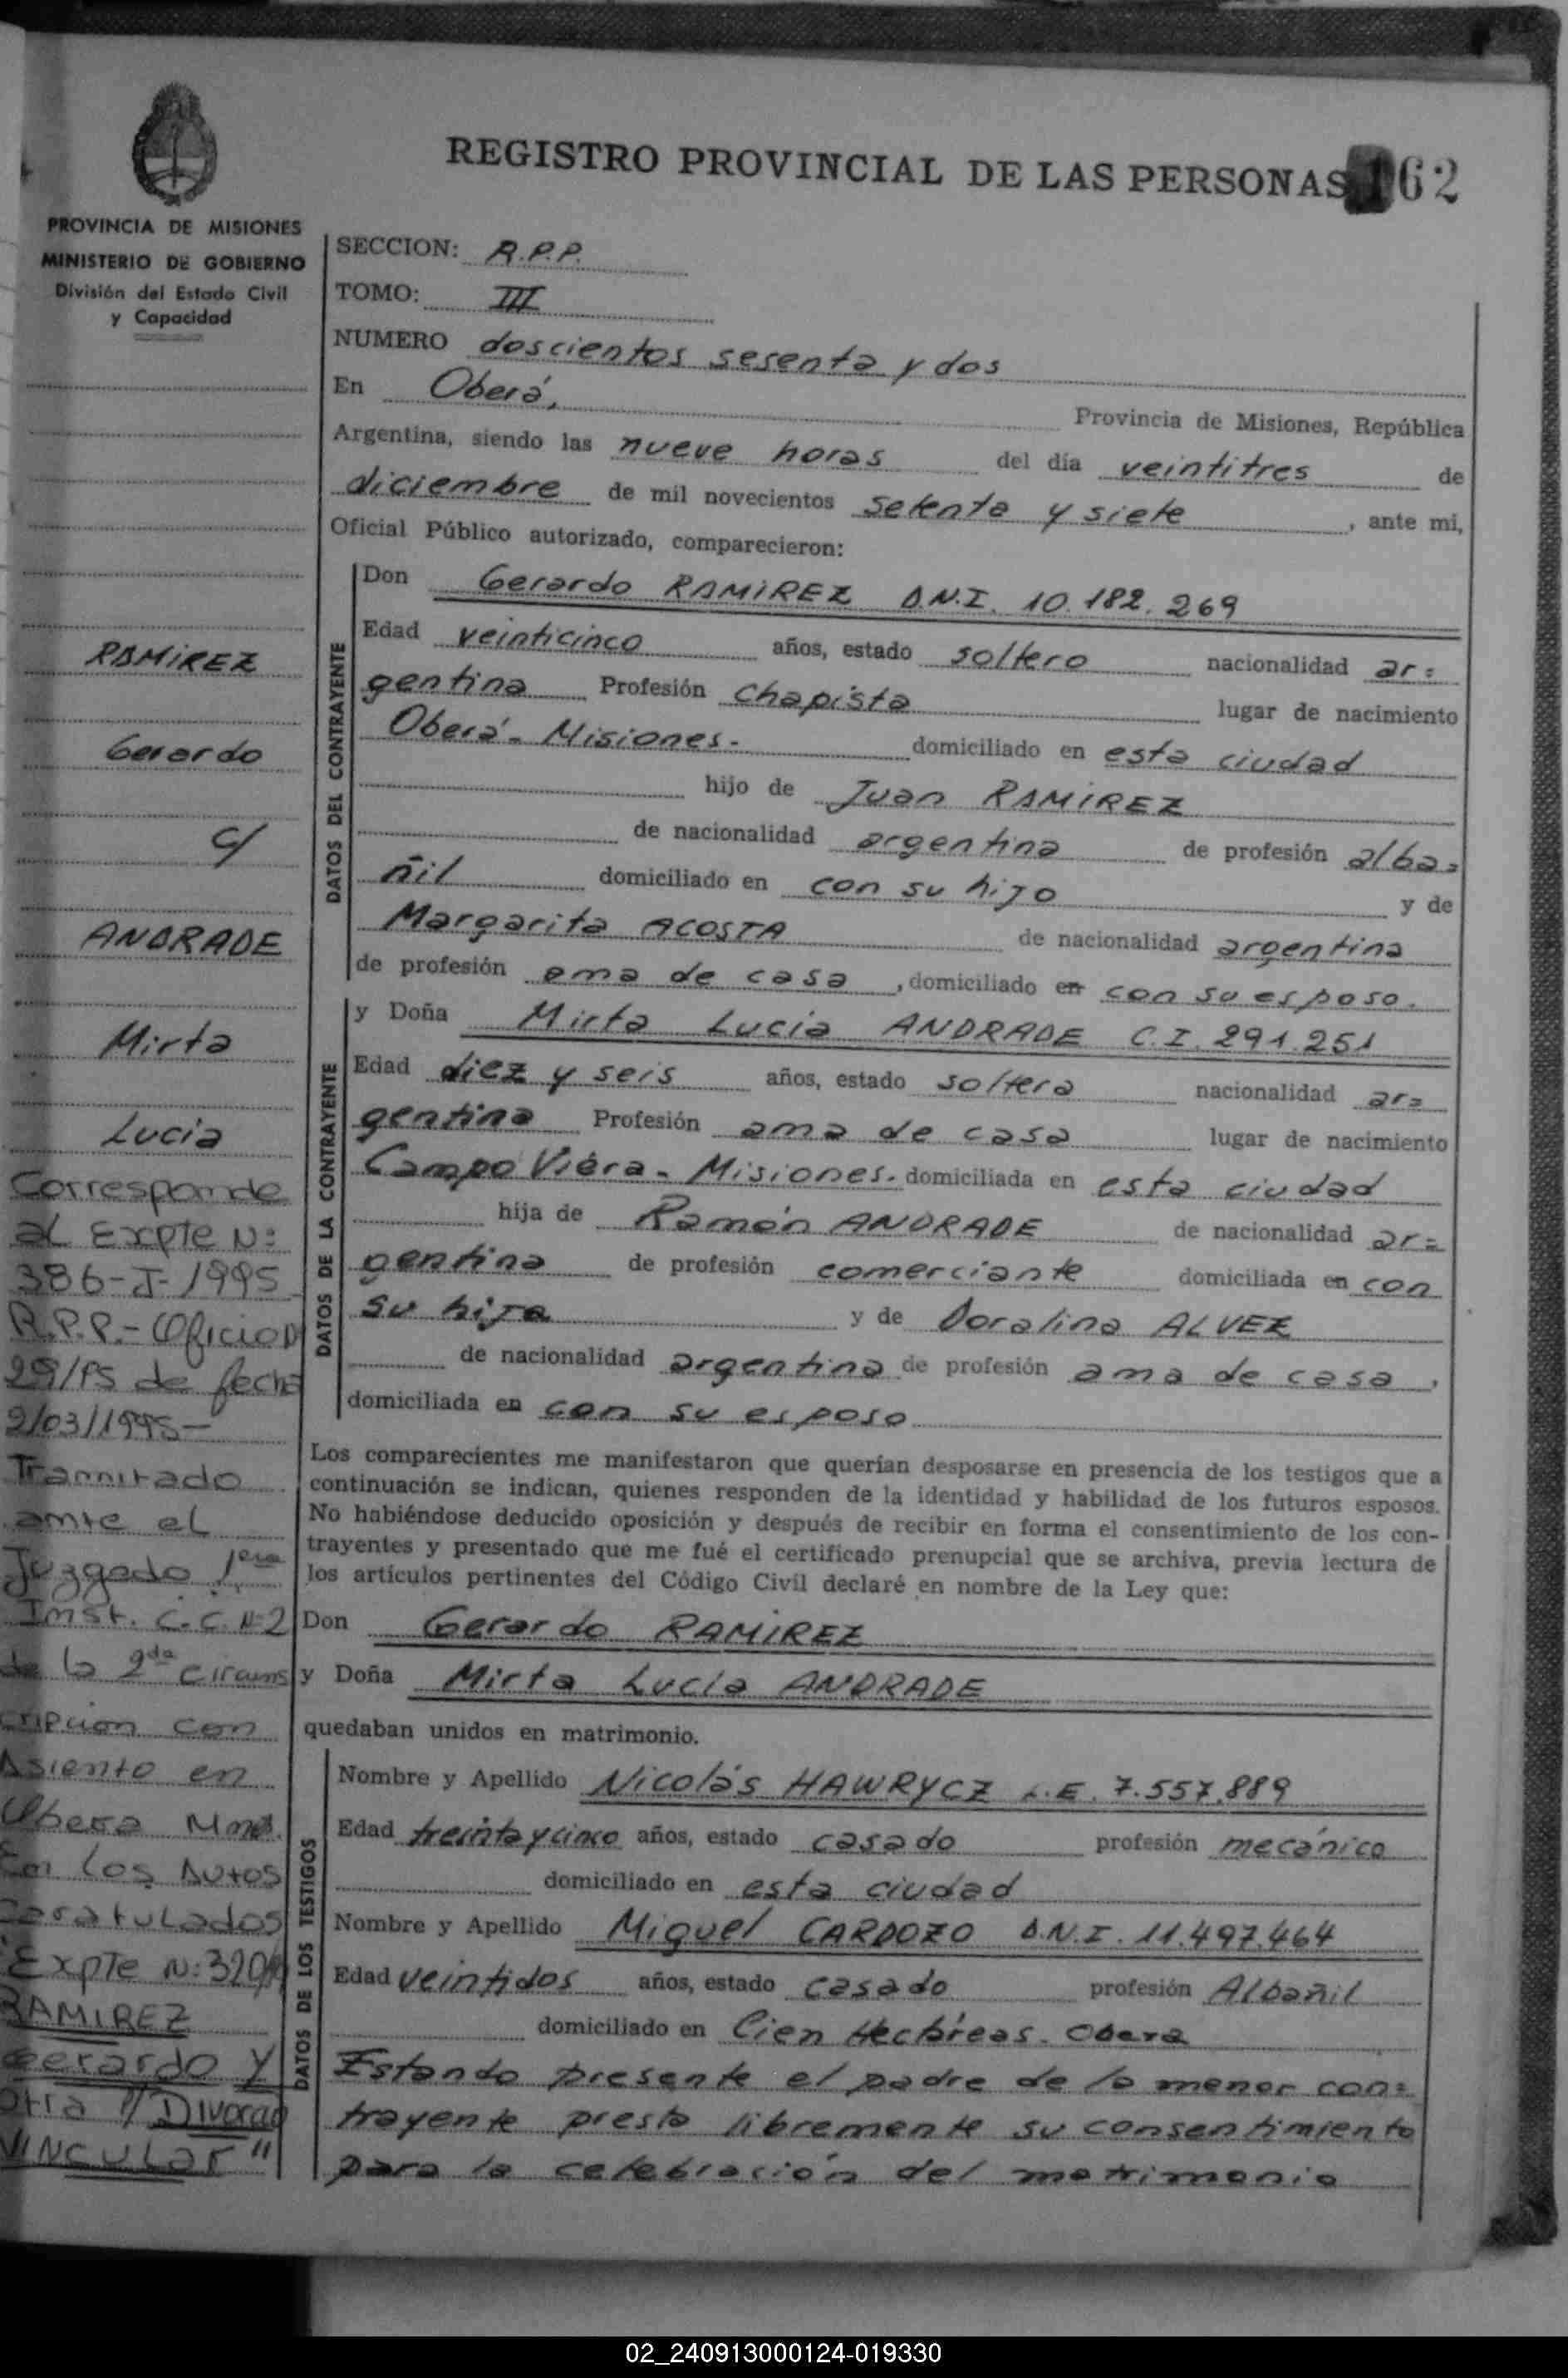 REGISTRO PROVINCIAL DE LAS PERSONAS 162
PROVINCIA DE MISIONES
MINISTERIO DE GOBIERNO
División del Estado Civil
y Capacidad
SECCION: R.P.P.
TOMO: III
NUMERO doscientos sesenta y dos
En Oberá, Provincia de Misiones, República
Argentina, siendo las nueve horas del día veintitres de
diciembre de mil novecientos setenta y siete, ante mi,
Oficial Público autorizado, comparecieron:
DATOS DEL CONTRAYENTE
Don Gerardo RAMIREZ D.N.I. 10.182.269
Edad veinticinco años, estado soltero nacionalidad ar=
gentina Profesión Chapista lugar de nacimiento
Oberá - Misiones - domiciliado en esta ciudad
hijo de Juan RAMIREZ
de nacionalidad argentina de profesión alba=
ñil domiciliado en con su hijo y de
Margarita ACOSTA de nacionalidad argentina
de profesión ama de casa, domiciliado en con su esposo.
DATOS DE LA CONTRAYENTE
y Doña Mirta Lucia ANDRADE C.I. 291.251
Edad diez y seis años, estado soltera nacionalidad ar=
gentina Profesión ama de casa lugar de nacimiento
Campo Viera - Misiones. domiciliada en esta ciudad
hija de Ramón ANDRADE de nacionalidad ar=
gentina de profesión comerciante domiciliada en con
su hija y de Doralina ALVEZ
de nacionalidad argentina de profesión ama de casa,
domiciliada en con su esposo
Los comparecientes me manifestaron que querían desposarse en presencia de los testigos que a
continuación se indican, quienes responden de la identidad y habilidad de los futuros esposos.
No habiéndose deducido oposición y después de recibir en forma el consentimiento de los con-
trayentes y presentado que me fué el certificado prenupcial que se archiva, previa lectura de
los artículos pertinentes del Código Civil declaré en nombre de la Ley que:
Don Gerardo RAMIREZ
y Doña Mirta Lucía ANDRADE
quedaban unidos en matrimonio.
DATOS DE LOS TESTIGOS
Nombre y Apellido Nicolás HAWRYCZ L.E. 7.557.889
Edad treinta y cinco años, estado casado profesión mecánico
domiciliado en esta ciudad
Nombre y Apellido Miguel CARDOZO D.N.I. 11.497.464
Edad veintidos años, estado casado profesión Albañil
domiciliado en Cien Hectáreas - Oberá
Estando presente el padre de la menor con=
trayente presta libremente su consentimiento
para la celebración del matrimonio
RAMIREZ
Gerardo
c/
ANDRADE
Mirta
Lucia
Corresponde
al Expte N:
386-J-1995
R.P.P.- Oficio N
29/95 de fecha
2/03/1995-
Tramitado
ante el
Juzgado 1era
Inst. C.C. N:2
de la 2da Circuns
cripcion con
Asiento en
Obera Mnes.
En los Autos
Caratulados
Expte N:
RAMIREZ
Gerardo y
otra s/ Divorcio
VINCULAR"
02_240913000124-019330